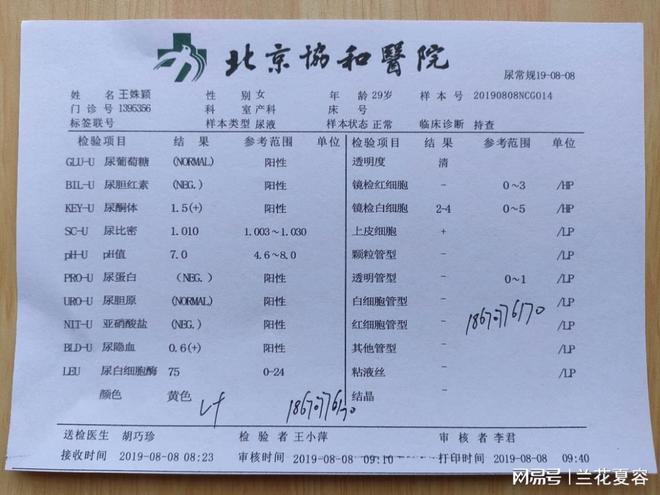 北京協和醫院
尿常规19-08-08
姓 名 王姝颖 性 别 女 年 龄 29岁 样 本 号 20190808NCG014
门 诊 号 1395356 科 室 产科 床 号
标签联号 样本类型 尿液 样本状态 正常 临床诊断 待查
检验项目 结 果 参考范围 单位 检验项目 结 果 参考范围 单位
GLU-U 尿葡萄糖 (NORMAL) 阳性 透明度 清
BIL-U 尿胆红素 (NEG.) 阳性 镜检红细胞 - 0~3 /HP
KEY-U 尿酮体 1.5(+) 阳性 镜检白细胞 2-4 0~5 /HP
SC-U 尿比密 1.010 1.003~1.030 上皮细胞 + /LP
pH-U pH值 7.0 4.6~8.0 颗粒管型 - /LP
PRO-U 尿蛋白 (NEG.) 阳性 透明管型 - 0~1 /LP
URO-U 尿胆原 (NORMAL) 阳性 白细胞管型 - /LP
NIT-U 亚硝酸盐 (NEG.) 阳性 红细胞管型 - /LP
18670776170
BLD-U 尿隐血 0.6(+) 阳性 其他管型 - /LP
LEU 尿白细胞酶 75 0-24 粘液丝 - /LP
颜色 黄色 结晶 -
18670776170
送检医生 胡巧珍 检 验 者 王小萍 审 核 者 李君
接收时间 2019-08-08 08:23 审核时间 2019-08-08 09:10 打印时间 2019-08-08 09:40
网易号 | 兰花夏容